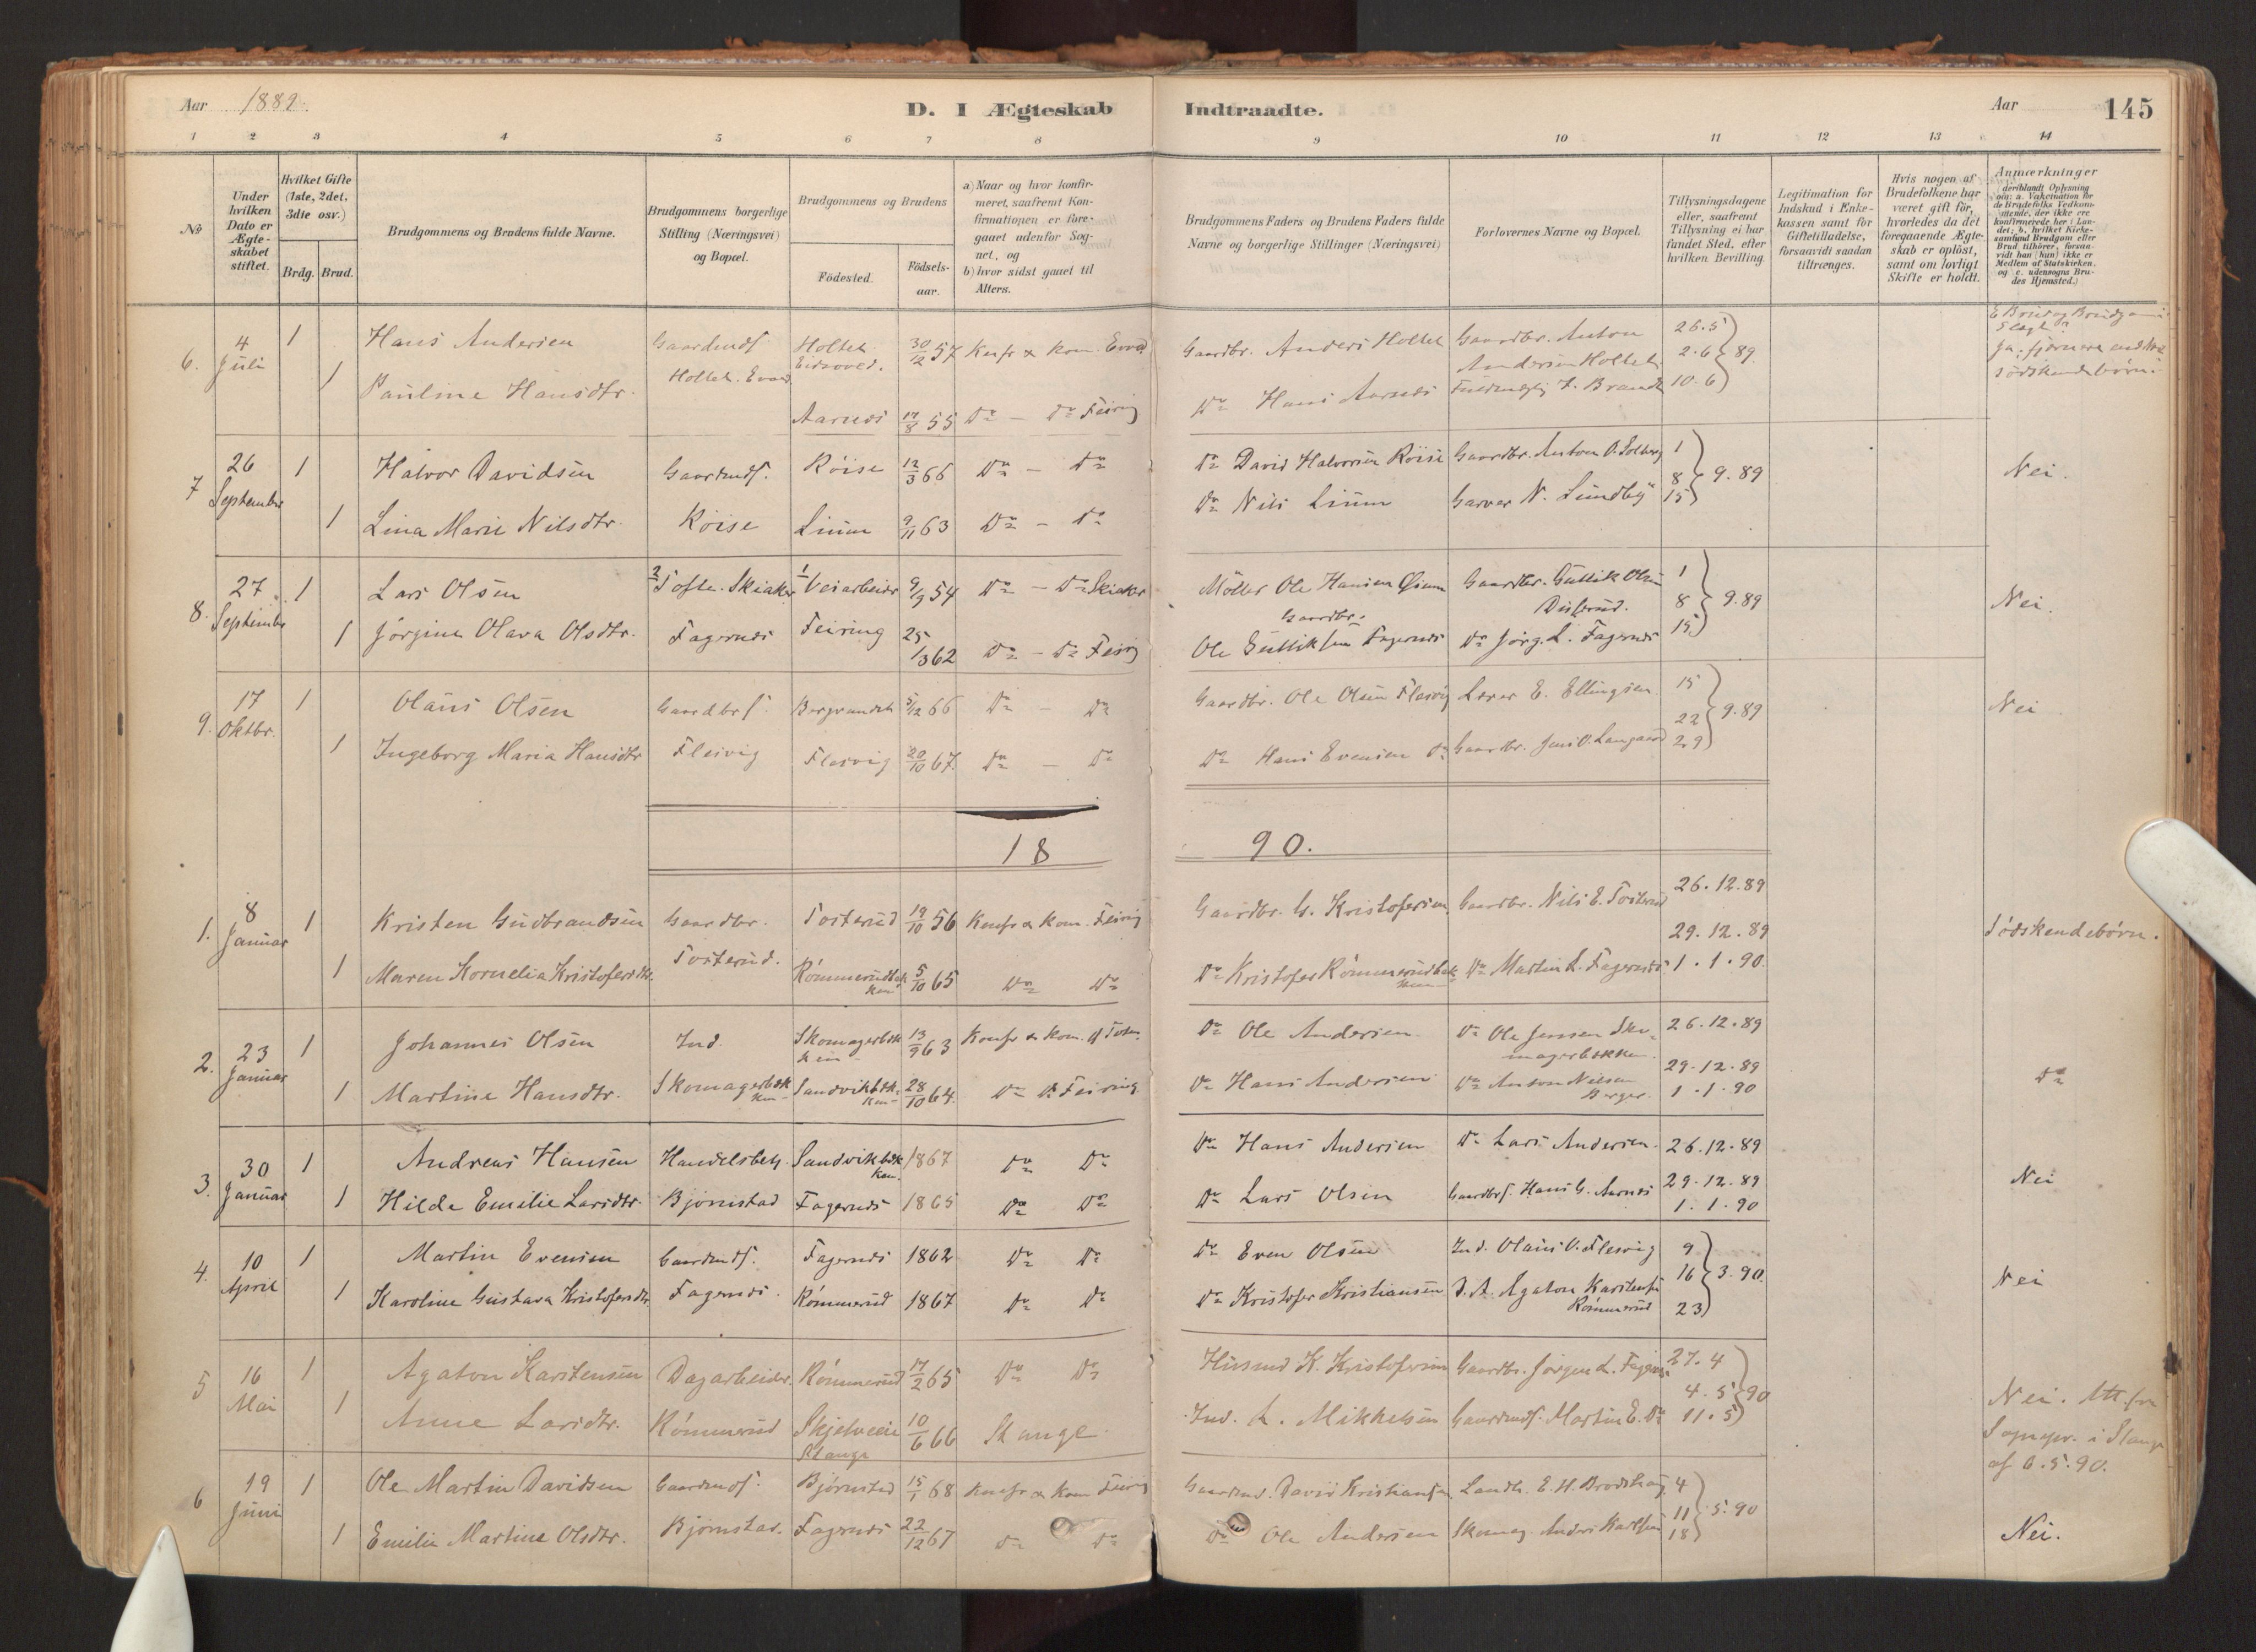 Aar 1889.
D. I Ægteskab Indtraadte.
Aar 145
1 2 3 4 5 6 7 8 9 10 11 12 13 14
No
Under hvilken Dato er Ægteskabet stiftet.
Hvilket Gifte (1ste, 2det, 3die osv.)
Brdg. Brud.
Brudgommens og Brudens fulde Navne.
Brudgommens borgerlige Stilling (Næringsvei) og Bopæl.
Brudgommens og Brudens
Födested.
Födsels-aar.
a) Naar og hvor konfirmeret, saafremt Konfirmationen er foregaaet udenfor Sognet, og
b) hvor sidst gaaet til Alters.
Brudgommens Faders og Brudens Faders fulde Navne og borgerlige Stillinger (Næringsvei)
Forlovernes Navne og Bopæl.
Tillysningsdagene eller, saafremt Tillysning ei har fundet Sted, efter hvilken Bevilling.
Legitimation for Indskud i Enkekassen samt for Giftetilladelse, forsaavidt saadan tiltrænges.
Hvis nogen af Brudefolkene har været gift för, hvorledes da det foregaaende Ægteskab er oplöst, samt om lovligt Skifte er holdt.
Anmærkninger
6. 4 Juli 1 Hans Andersen Gaardmds. Holtet Eidsvold. 30/12 57 Konfr & kom. Gaardbr. Anders Holtet Gaardbr. Anton Andersen Holtet 26.5 2.6 89
1 Pauline Hansdtr. Aarnæs 17/8 55 Do - Do Feiring Do Hans Aarnæs Brandt 10.6
7 26 September 1 Halvor Davidsen Gaardmds. Röise 12/3 66 Do - Do Do David Halvorsen Röise Gaardbr. Anton O. Solberg 1 8 15 9.89 Nei.
1 Lina Marie Nilsdtr. Röise Linum 9/11 63 Do - Do Do Nils Linum Garver N. Lundby
8. 27 September 1 Lars Olsen 2/ Tofte. Skiaker 1/ Veiarbeider 9/9 54 Do - Do Skiaker Möller Ole Hansen Gaardbr. Gullik Olsen 1 8 15 9.89 Nei.
1 Jörgine Olava Olsdtr. Fagernæs Feiring 25/3 62 Do - Do Feirig Gaardbr. Ole Gulliksen Fagernæs Do Jörg. L. Fagernæs
9. 17 Oktbr. 1 Olaus Olsen Gaardbrs. 5/12 66 Do - Do Gaardbr. Ole Olsen Flesvig Lærer E. Ellingsen 15 22 29 9.89 Nei
1 Ingeborg Maria Hansdtr Flesvig Flesvig 20/10 67. Do - Do Do Hans Evensen Do Gaardbr. Jens O. Langaard
18 90.
1. 8 Januar 1 Kristen Gudbrandsen Gaardbr. Tosterud 19/10 56 Konfr & kom. Feirig Gaardbr. G. Kristofersen Gaardbr. Nils E. Tosterud 26.12.89 29.12.89 Södskendebörn.
1 Maren Kornelia Kristofersdtr. Tosterud. Römmerudbækken 5/10 65 Do Do Do Kristofer Römmerudbækken Do Martin L. Fagernæs 1.1.90.
2. 23 Januar 1 Johannes Olsen Ind. Skomagerbækken 13/9 63 Konfr & kom. Do Ole Andersen Do Ole Jensen Skomagerbækken 26.12.89 29.12.89 Do
1 Martine Hansdtr. Skomagerbækken Sandvikbækken 28/10 64. Do Do Feiring Do Hans Andersen Do Anton Nilsen Berger. 1.1.90
3. 30 Januar 1 Andreas Hansen Handelsbetj. Sandvikbækken 1867 Do Do Do Hans Andersen Do Lars Andersen 26.12.89 29.12.89 Nei
1 Hilda Emilie Larsdtr. Bjørnstad Fagernæs 1865 Do Do Do Lars Olsen Gaardbrs. Hans G. Aarnæs 1.1.90
4. 10 April 1 Martin Evensen Gaardmds. Fagernæs 1862 Do Do Do Even Olsen Ind. Olaus O. Flesvig 9 16 23 3.90. Nei
1 Karoline Gustava Kristofersdtr. Fagernæs. Römmerud 1867 Do Do Do Kristofer Kristiansen Agaton Karstensen Römmerud
5 16 Mai 1 Agaton Karstensen Dagarbeider. Römmerud 17/2 65 Do Do Husmd K. Kristofersen Gaardbr. Jörgen L. Fagernæs 27.4 4.5 11.5 90 Nei. Att. fra Sognepr. i Stange af 6.5.90.
1 Anne Larsdtr. Römmerud Stange 10/6 66 Stange Ind. L. Mikkelsen Gaardmds. Martin E. Do
6 19 Juni 1 Ole Martin Davidsen Gaardmds. Bjørnstad 15/1 68 Konfr & kom Feirig David Kristiansen Landh. E. H. 4 11 18 5.90 Nei.
1 Emilie Martine Olsdtr. Bjørnstad. Fagernæs 22/12 67 Do Do Do Ole Andersen Skomag. Anders Karlsen